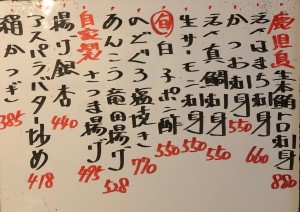 鹿児島 生本鮪トロ刺身 880
天然はまち刺身 660
かつお刺身 550
天然真鯛刺身 550
生サーモン刺身 550
旬 白子ポン酢 550
のどぐろ塩焼き 770
あんこう竜田揚げ 528
自家製 さつま揚げ 495
揚げ銀杏 440
アスパラバター炒め 418
385